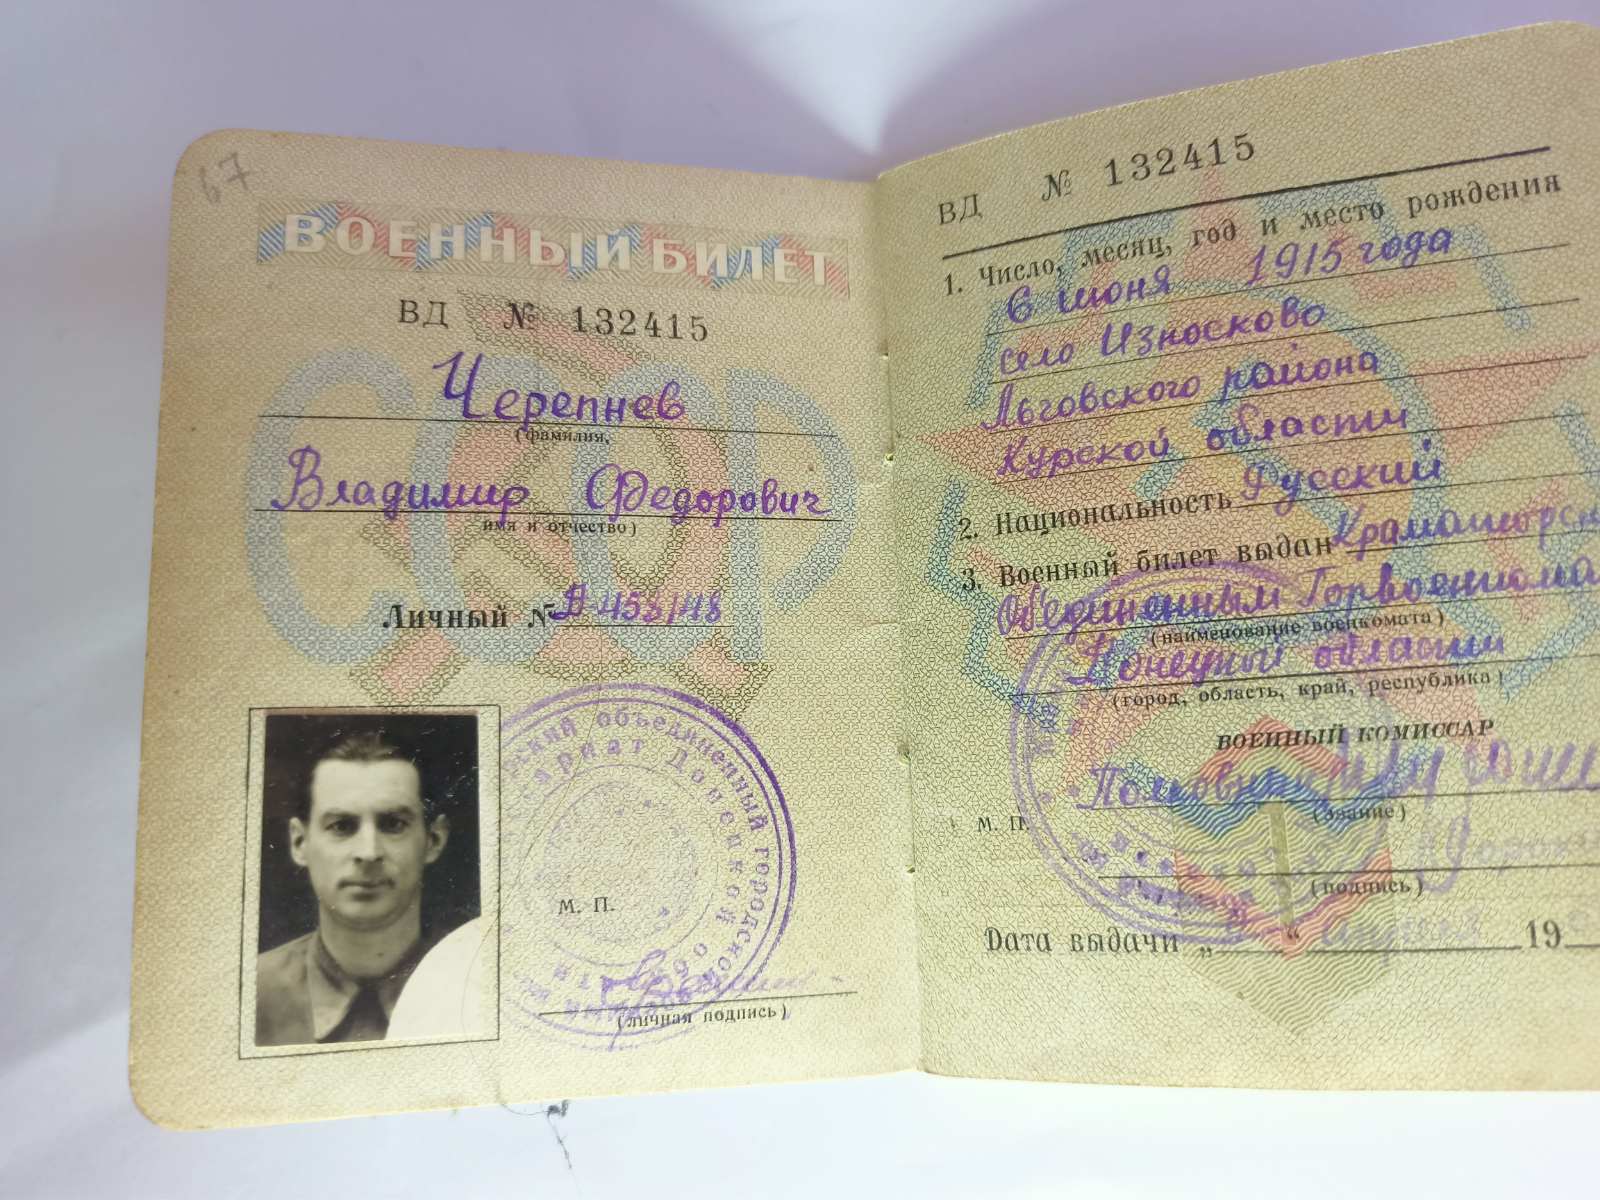 67
ВОЕННЫЙ БИЛЕТ
ВД № 132415
Черепнев
(фамилия,
Владимир Федорович
имя и отчество)
Личный №
М. П.
(личная подпись)
объединенный городской
Донецкой
ВД № 132415
1. Число, месяц, год и место рождения
6 июня 1915 года
село Износково
Льговского района
Курской области
2. Национальность Русский
3. Военный билет выдан Краматорск
Объединенным Горвоенкома
(наименование военкомата)
Донецкой области
(город, область, край, республика)
ВОЕННЫЙ КОМИССАР
(звание)
М. П.
(подпись)
Дата выдачи „ “ 19